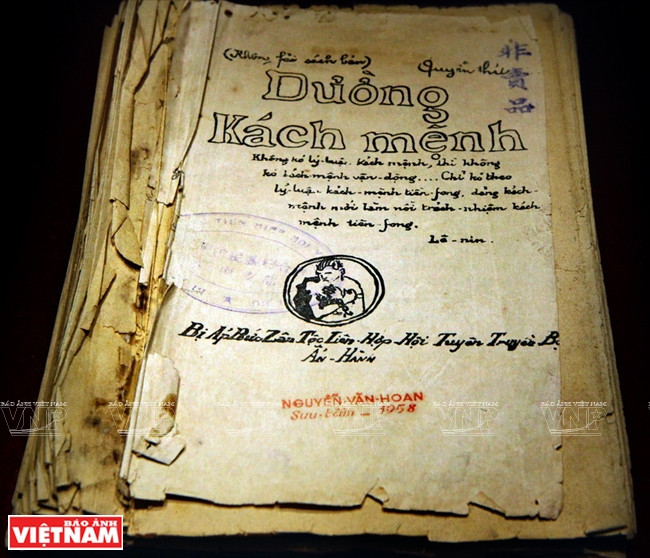 (Không fải sách bán)
Quyển thứ
非賣品
Đường
Kách mệnh
Không kó lý-luận kách mệnh, thì không
kó kách mệnh vận-động.... Chỉ kó theo
lý-luận kách-mệnh tiên-fong, đảng kách-
mệnh mới làm nổi trách-nhiệm kách
mệnh tiên-fong.
Lê-nin.
Bị Áp Bức Zân Tộc Liên-Hợp Hội Tuyên Truyền Bộ
Ấn-Hành
NGUYỄN-VĂN-HOAN
Sưu-tầm - 1958
BÁO ẢNH VIỆT NAM
VNP
BÁO ẢNH
VIỆTNAM